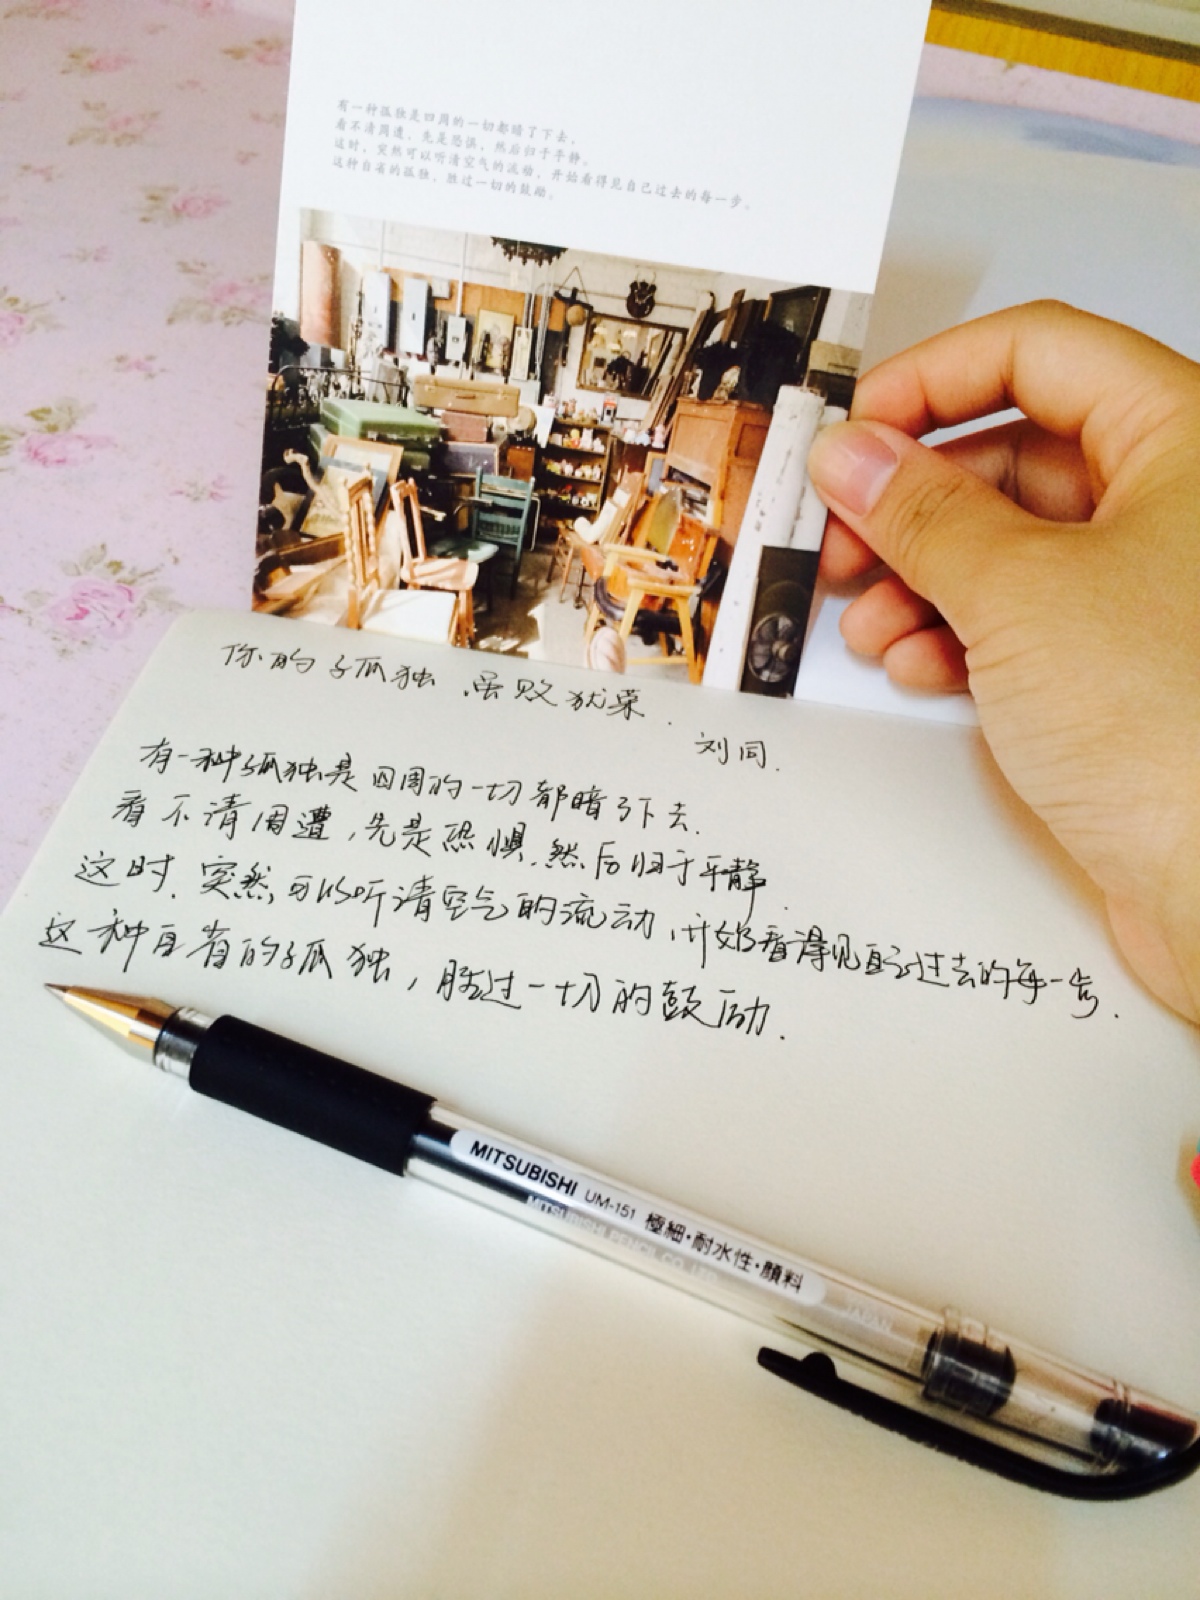 有一种孤独是四周的一切都暗了下去，
看不清周遭，先是恐惧，然后归于平静。
这时，突然可以听清空气的流动，开始看得见自己过去的每一步。
这种自省的孤独，胜过一切的鼓励。
你的孤独，虽败犹荣．
刘同．
有一种孤独是四周的一切都暗了下去．
看不清周遭，先是恐惧，然后归于平静．
这时．突然可以听清空气的流动，开始看得见自己过去的每一步．
这种自省的孤独，胜过一切的鼓励．
MITSUBISHI UM-151 極細・耐水性・顔料
MITSUBISHI PENCIL CO., LTD.
JAPAN